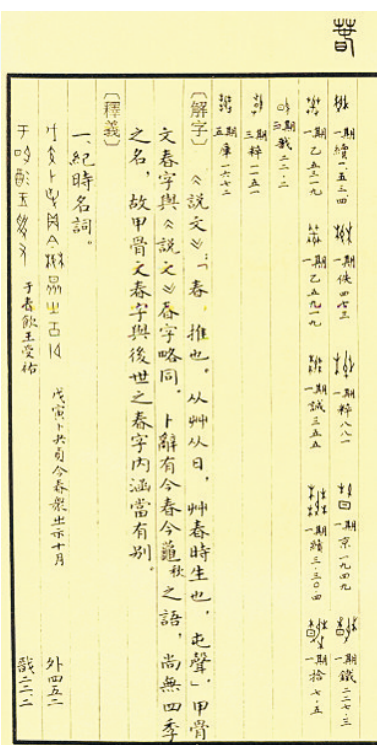 萅
一期 續一·五三·四
一期 佚四七三
一期 粹八八一
一期 京一九四九
一期 鐵二二七·三
一期 乙五三一九
一期 乙五九一九
一期 誠三五五
一期 續三·三〇·四
一期 拾七·五
三期 戩二二·二
三期 粹一一五一
五期 庫一六七二
〔解字〕《說文》:「春,推也。从艸从日,艸春時生也,屯聲」甲骨
文春字與《說文》春字略同,卜辭有今春今龝秋之語,尚無四季
之名,故甲骨文春字與後世之春字內涵當有別。
〔釋義〕
一、紀時名詞。
戊寅卜 貞今春眾出 十月 外四五二
于春飲王受祐 戩二二·二